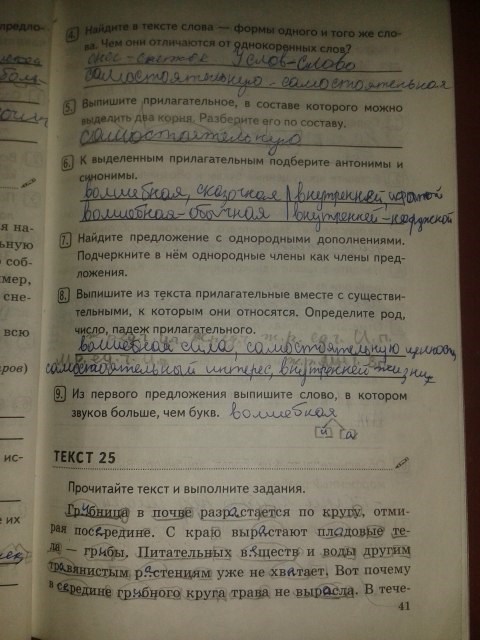 4. Найдите в тексте слова — формы одного и того же сло-
ва. Чем они отличаются от однокоренных слов?
слов-слово
самостоятельную - самостоятельная
5. Выпишите прилагательное, в составе которого можно
выделить два корня. Разберите его по составу.
самостоятельную
6. К выделенным прилагательным подберите антонимы и
синонимы.
волшебная, сказочная внутренней,
волшебная-обычная внутренней-наружной
7. Найдите предложение с однородными дополнениями.
Подчеркните в нём однородные члены как члены пред-
ложения.
8. Выпишите из текста прилагательные вместе с существи-
тельными, к которым они относятся. Определите род,
число, падеж прилагательного.
волшебная сила, самостоятельную ценность,
самостоятельный интерес, внутренней жизни
9. Из первого предложения выпишите слово, в котором
звуков больше, чем букв. волшебная
й а
ТЕКСТ 25
Прочитайте текст и выполните задания.
Грибница в почве разрастается по кругу, отми-
рая посередине. С краю вырастают плодовые те-
ла — грибы. Питательных веществ и воды другим
травянистым растениям уже не хватает. Вот почему
в середине грибного круга трава не выросла. В тече-
41
предло-
я на-
льную
соб-
мер,
сне-
всю
ров)
ис-
их